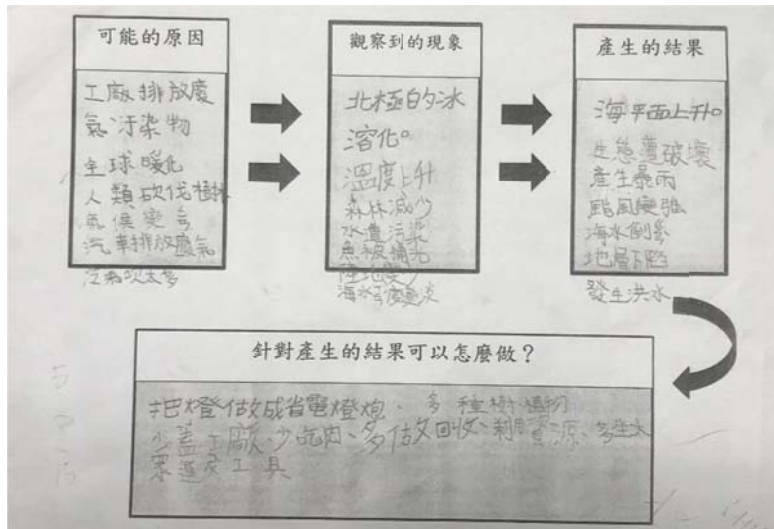 可能的原因
工廠排放廢
氣汙染物
全球暖化
人類砍伐樹林
氣候變
汽車排放廢氣
太多
觀察到的現象
北極的冰
溶化。
溫度上升
森林減少
水遭污染
魚被捕光
陸地變少
海水
產生的結果
海平面上升。
生態遭破壞
產生暴雨
颱風變強
海水倒
地層下陷
發生洪水
針對產生的結果可以怎麼做？
把燈做成省電燈炮、多種樹、植物
少蓋工廠、少吃肉、多做回收、利用資源、多坐大
眾運
工具